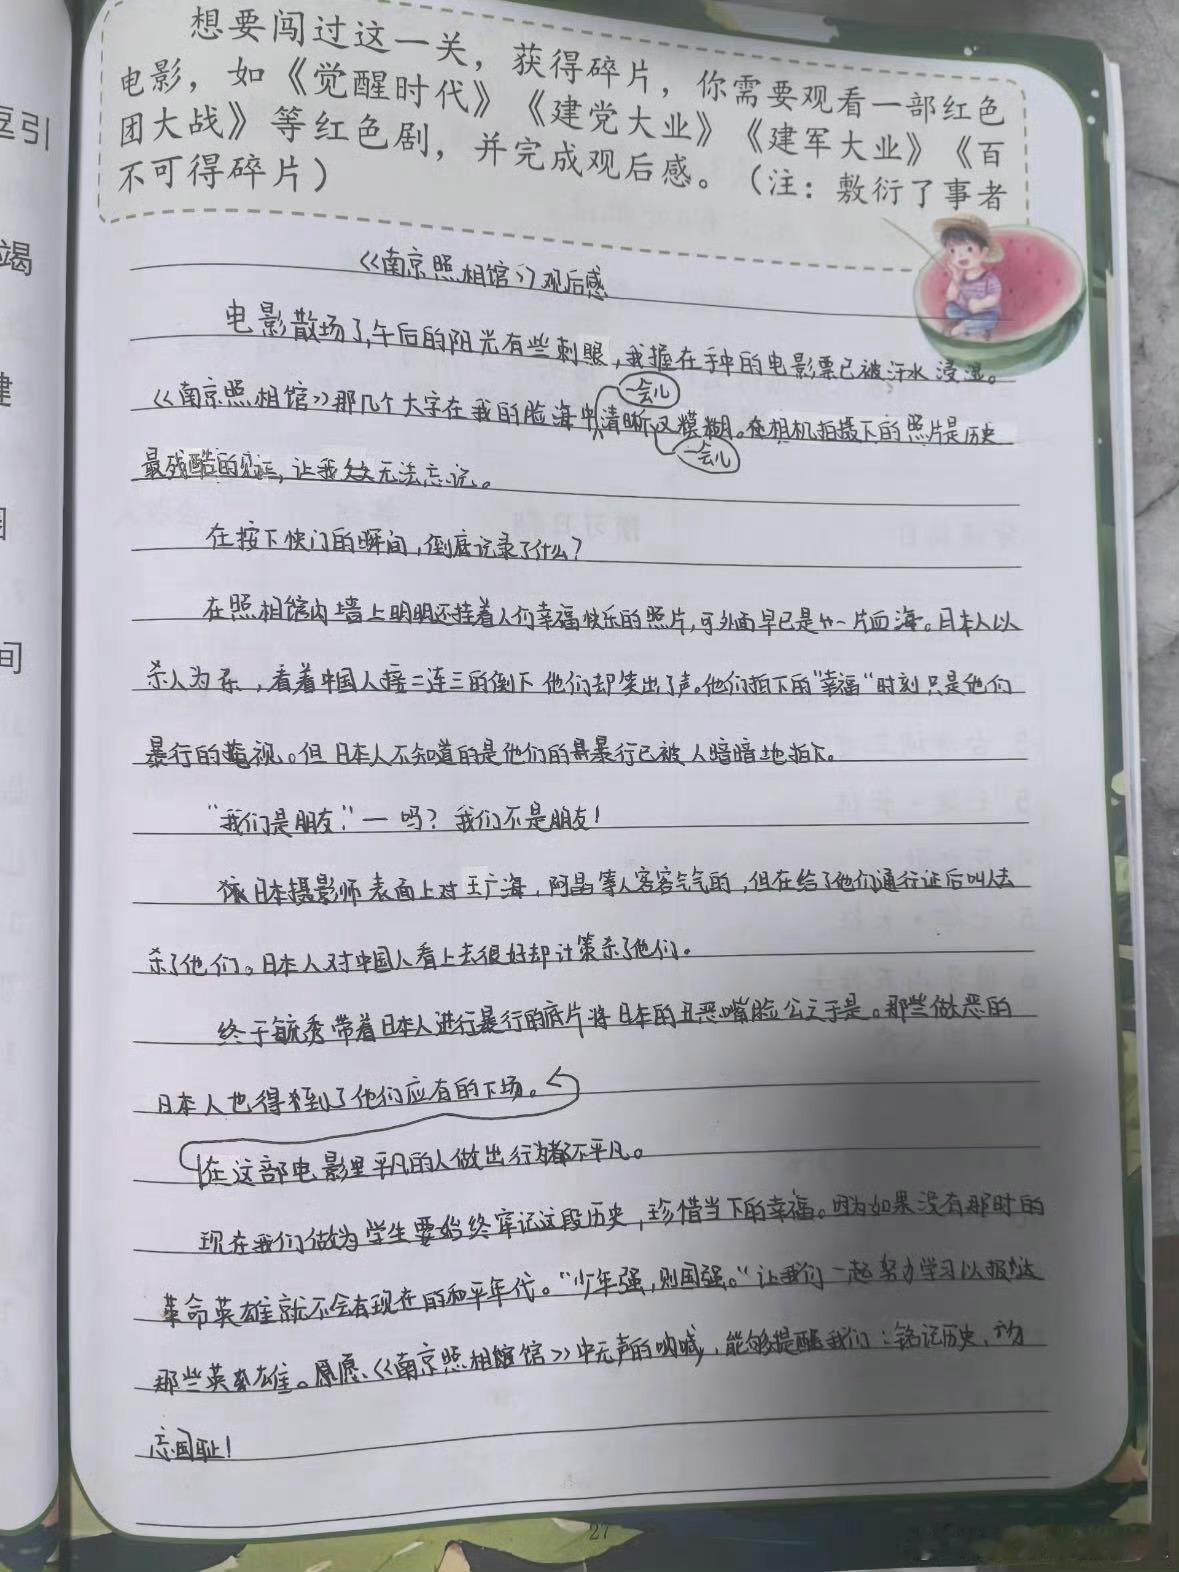 想要闯过这一关，获得碎片，你需要观看一部红色
电影，如《觉醒时代》《建党大业》《建军大业》《百
团大战》等红色剧，并完成观后感。（注：敷衍了事者
不可得碎片）
《南京照相馆》观后感
电影散场了，午后的阳光有些刺眼，我握在手中的电影票已被汗水浸湿。
《南京照相馆》那几个大字在我的脑海中一会儿清晰一会儿模糊。在相机拍摄下的照片是历史
最残酷的见证，让我久久无法忘记。
在按下快门的瞬间，倒底记录了什么？
在照相馆内墙上明明还挂着人们幸福快乐的照片，可外面早已是一片血海。日本人以
杀人为乐，看着中国人接二连三的倒下他们却笑出了声。他们拍下的“幸福“时刻只是他们
暴行的蔑视。但日本人不知道的是他们的暴行已被人暗暗地拍下。
“我们是朋友”一吗？我们不是朋友！
该日本摄影师表面上对王广海，阿昌等人客客气气的，但在给了他们通行证后叫人去
杀了他们。日本人对中国人看上去很好却计策杀了他们。
终于毓秀带着日本人进行暴行的底片将日本的丑恶嘴脸公之于是。那些做恶的
日本人也得到了他们应有的下场。
在这部电影里平凡的人做出行为都不平凡。
现在我们做为学生要始终牢记这段历史，珍惜当下的幸福。因为如果没有那时的
革命英雄就不会有现在的和平年代。“少年强，则国强。“让我们一起努力学习以报达
那些英雄。愿《南京照相馆》中无声的呐喊，能够提醒我们：铭记历史，勿
忘国耻！
27
豆引
竭
建
间